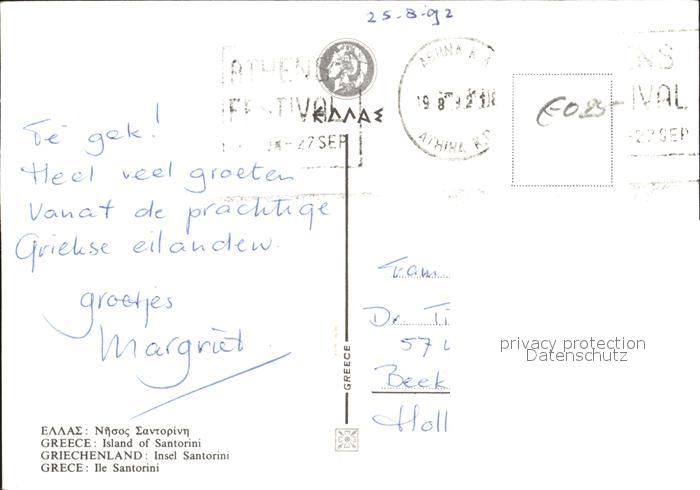 25-8-92
ATHENS
FESTIVAL
-27 SEP
ΕΛΛΑΣ
ΑΘΗΝΑ Κ.Δ
19 8 92
ATHINA
NS
IVAL
-27 SEP
€-0,25-
Te gek!
Heel veel groeten
Vanaf de prachtige
Griekse eilanden.
groetjes
Margriet
GREECE
Fam
Dr. Ti
57
Beek
Holl
privacy protection
Datenschutz
ΕΛΛΑΣ: Νῆσος Σαντορίνη
GREECE: Island of Santorini
GRIECHENLAND: Insel Santorini
GRECE: Ile Santorini